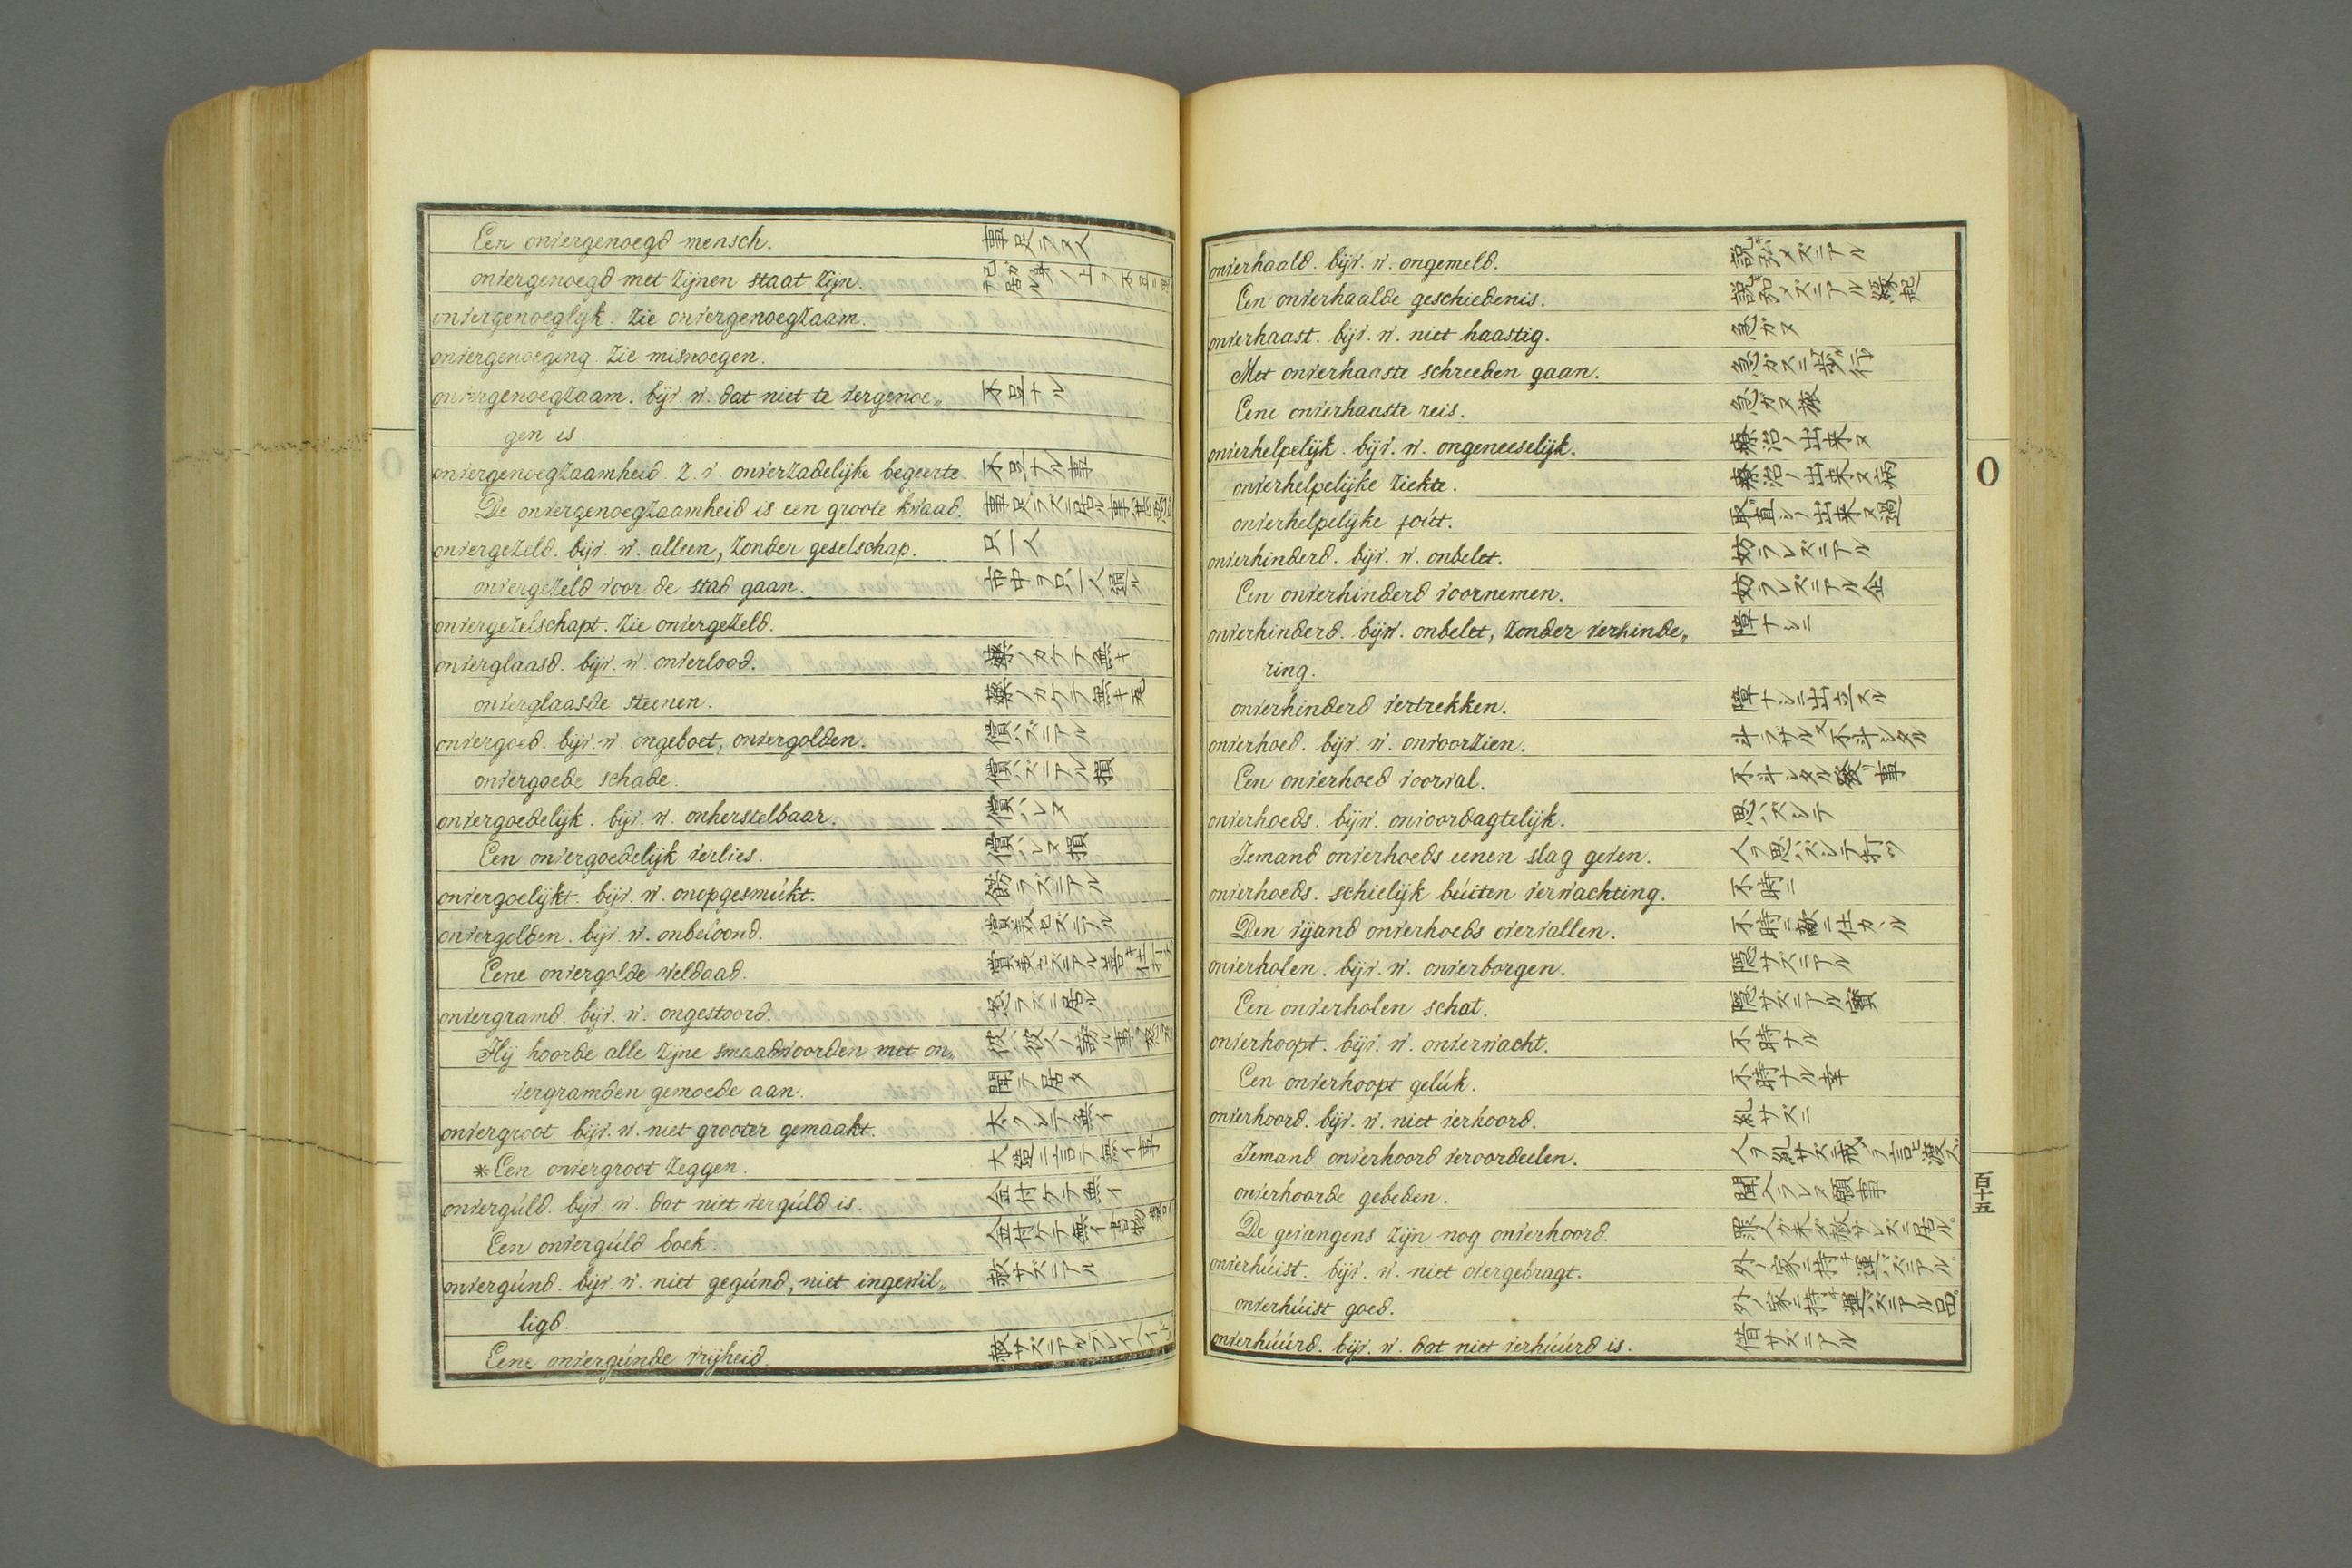 Een onvergenoegd mensch. 事足ラヌ人
onvergenoegd met zijnen staat zijn.
onvergenoeglijk. zie onvergenoegzaam.
onvergenoeging. zie misnoegen.
onvergenoegzaam. bijv. w. dat niet te vergenoe„ 不足ナル
gen is.
onvergenoegzaamheid. z. v. onverzadelijke begeerte. 不足ナル事
De onvergenoegzaamheid is een groote kwaad.
onvergezeld. bijv. w. alleen, zonder geselschap. 只一人
onvergezeld voor de stad gaan. 市中ヲ只一人通ル
onvergezelschapt. zie onvergezeld.
onverglaasd. bijv. w. onverlood. 藥ノカケテ無キ
onverglaasde steenen. 藥ノカケテ無キ瓦
onvergoed. bijv. w. ongeboet, onvergolden. 償ハズニアル
onvergoede schade. 償ハズニアル損
onvergoedelijk. bijv. w. onherstelbaar. 償ハレヌ
Een onvergoedelijk verlies. 償ハレヌ損
onvergoelijkt. bijv. w. onopgesmúkt. 餝ラズニアル
onvergolden. bijv. w. onbeloond. 賞美セズニアル
Eene onvergolde weldaad.
onvergramd. bijv. w. ongestoord. 怒ラズニ居ル
Hij hoorde alle zijne smaadwoorden met on„
vergramden gemoede aan. 聞テ居タ
onvergroot. bijv. w. niet grooter gemaakt. 大クシテ無イ
*Een onvergroot zeggen. 大造ニ言テ無イ事
onvergúld. bijv. w. dat niet vergúld is. 金付ケテ無イ
Een onvergúld boek.
onvergúnd. bijv. w. niet gegúnd, niet ingewil„ 赦サズニアル
ligd.
Eene onvergúnde vrijheid.
onverhaald. bijv. w. ongemeld.
Een onverhaalde geschiedenis.
onverhaast. bijv. w. niet haastig. 急ガヌ
Met onverhaaste schreeden gaan. 急ガズニ歩行
Eene onverhaaste reis. 急ガヌ旅
onverhelpelijk. bijv. w. ongeneeselijk. 療治ノ出来ヌ
onverhelpelijke ziekte. 療治ノ出来ヌ病
onverhelpelijke foút. 取直シノ出来ヌ過
onverhinderd. bijv. w. onbelet. 妨ラレズニアル
Een onverhinderd voornemen. 妨ラレズニアル企
onverhinderd. bijw. onbelet, zonder verhinde„ 障ナシニ
ring.
onverhinderd vertrekken. 障ナシニ出立スル
onverhoed. bijv. w. onvoorzien.
Een onverhoed voorval.
onverhoeds. bijw. onvoordagtelijk. 思ハズシテ
Iemand onverhoeds eenen slag geven. 人ヲ思ハズシテ打ツ
onverhoeds. schielijk búiten verwachting. 不時ニ
Den vijand onverhoeds overvallen.
onverholen. bijv. w. onverborgen. 隠サズニアル
Een onverholen schat. 隠サズニアル寳
onverhoopt. bijv. w. onverwacht. 不時ナル
Een onverhoopt gelúk. 不時ナル幸
onverhoord. bijv. w. niet verhoord. 糺サズニ
Iemand onverhoord veroordeelen.
onverhoorde gebeden. 聞入ラレヌ願事
De gevangens zijn nog onverhoord.
onverhúist. bijv. w. niet overgebragt. 外ノ家ニ持チ運バズニアル
onverhúist goed. 外ノ家ニ持チ運バズニアル品
onverhúúrd. bijv. w. dat niet verhúúrd is. 借サズニアル
O
百十五